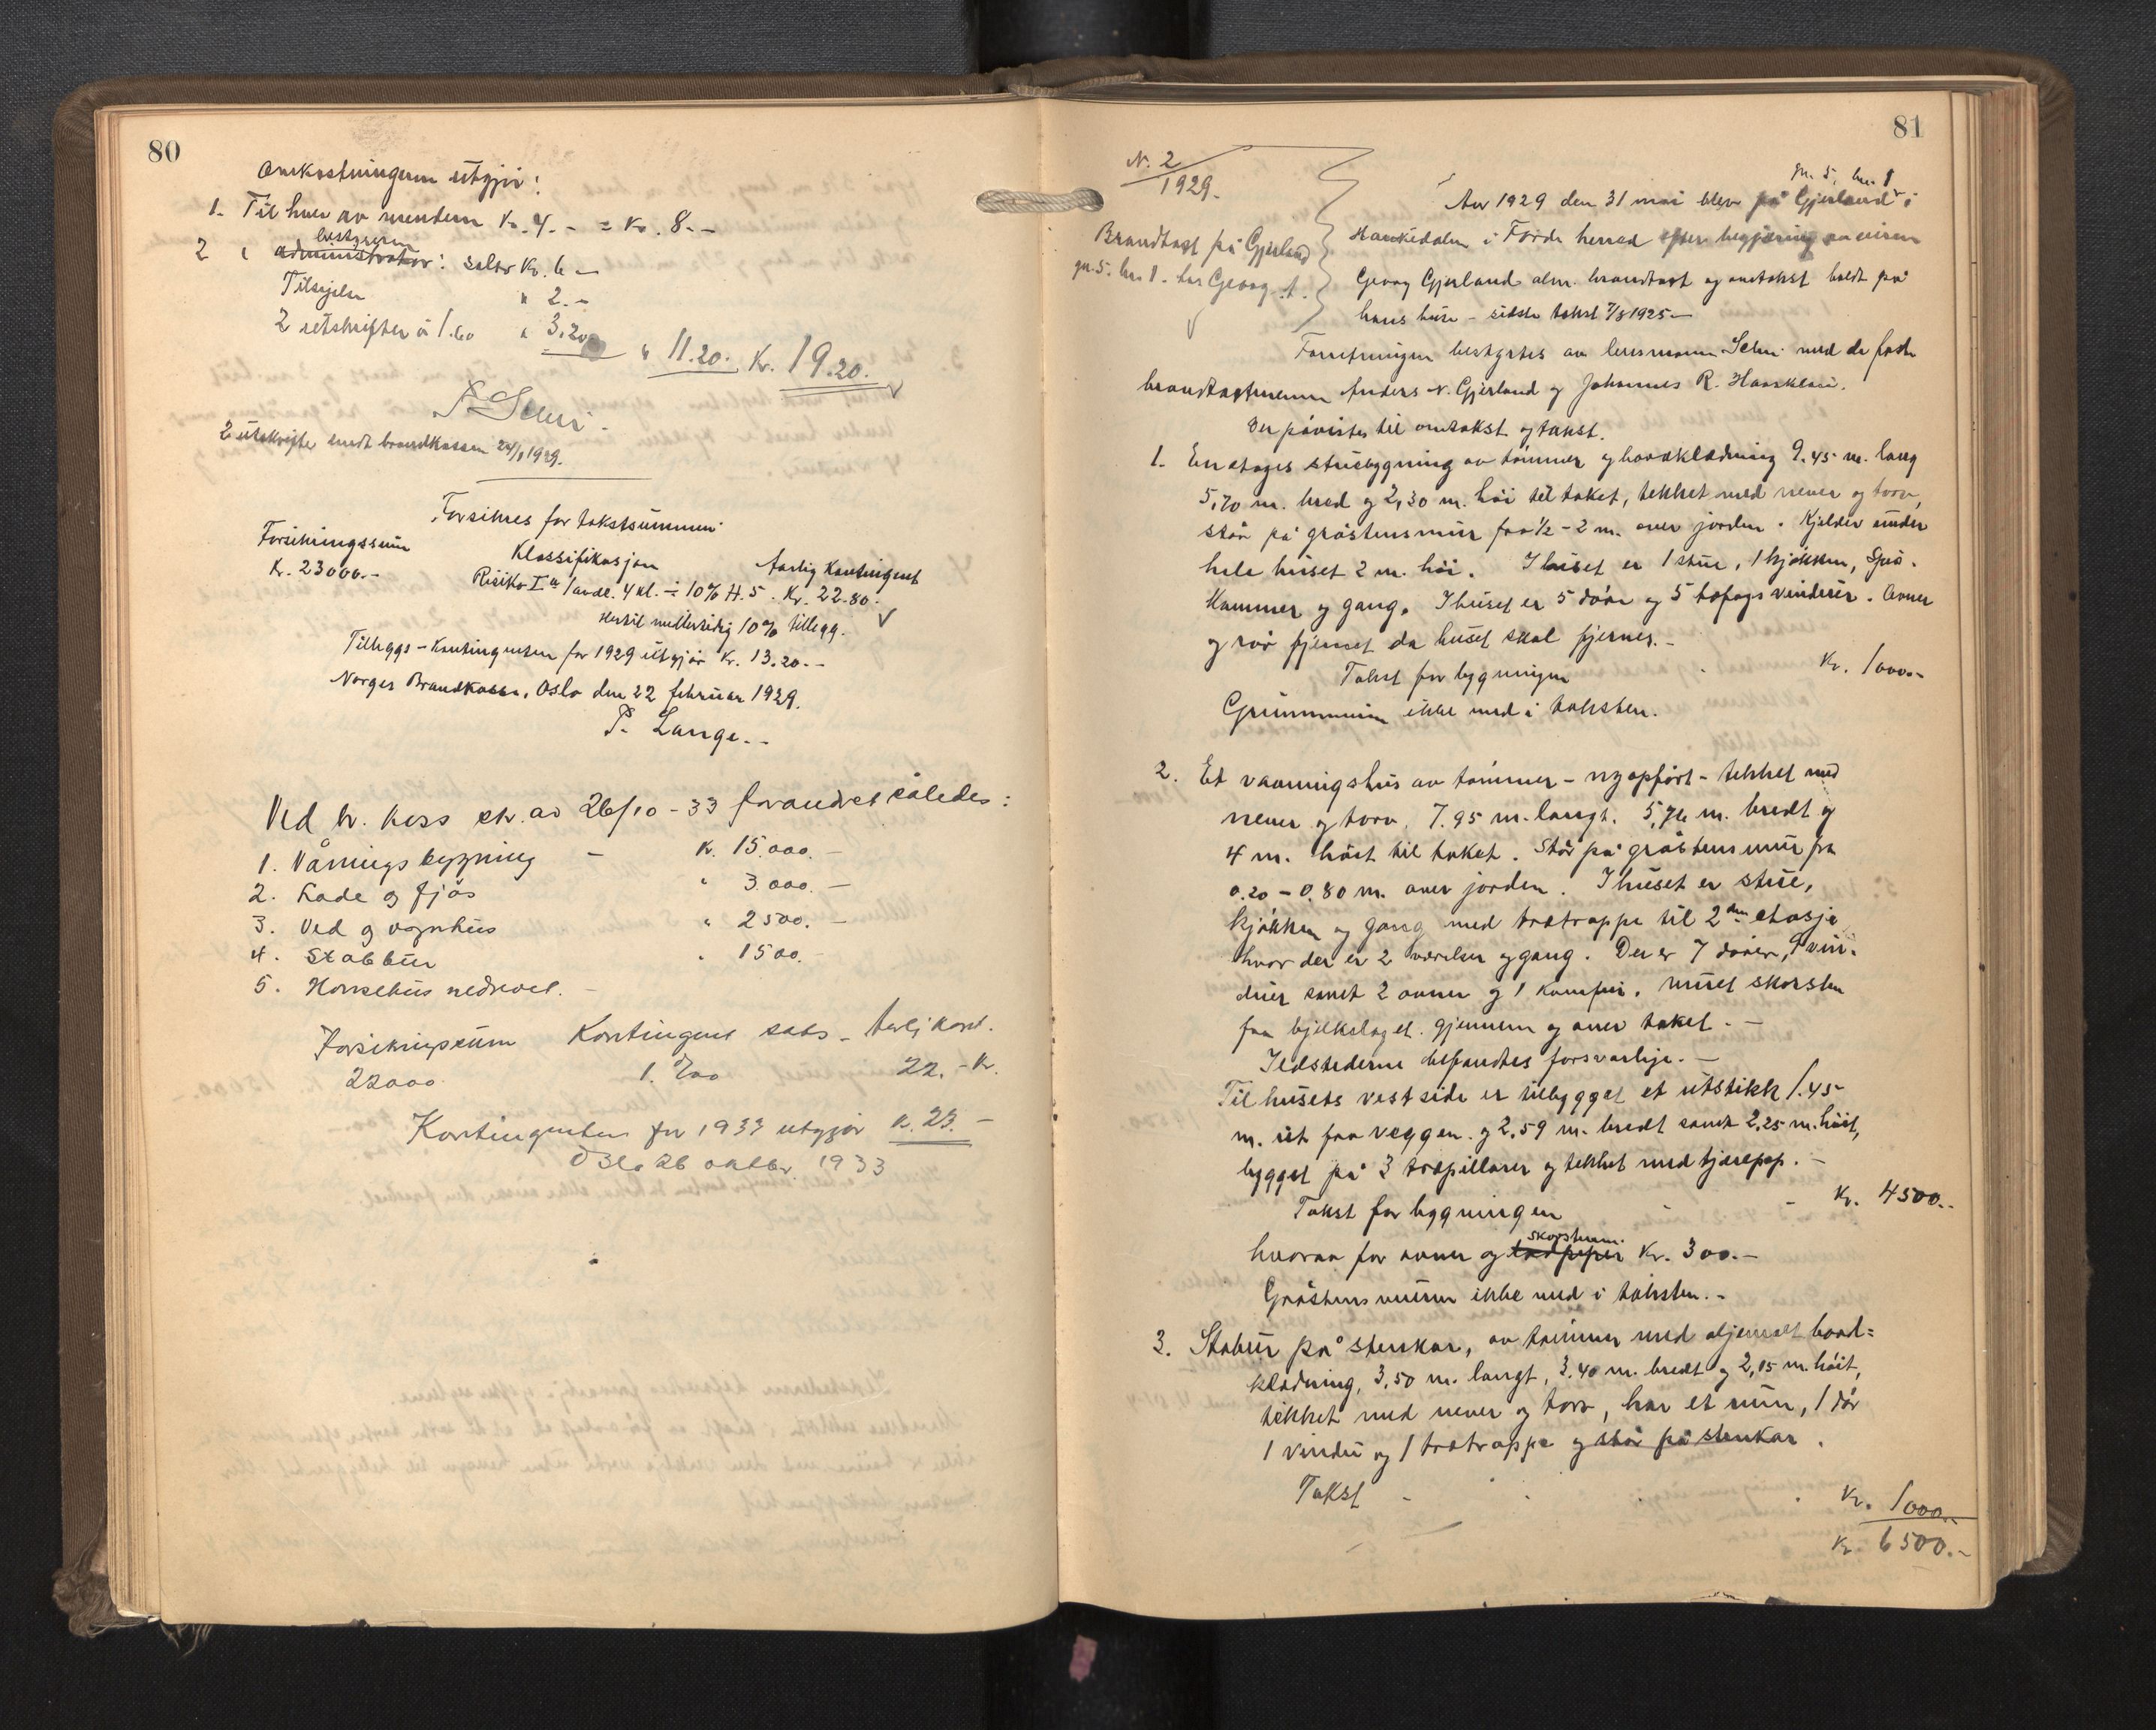 80
Omkostningerne utgjør:
1. Til hver av mendene Kr. 4.- = Kr. 8.-
bestyreren
2 " administrator: selv Kr. 6 -
Tilsigelse " 2.-
2 utskrifter á 1.60 " 3.20
" 11.20. Kr. 19.20.
2 utskrifter sendt brandkassen 24/1 1929.
Forsikres for takstsummen
Forsikringssum Klassifikasjon Aarlig Kontingent
Kr. 23000.- Risiko I a 1 avdl. 4 kl. ÷ 10% H. 5. Kr. 22.80.
Hertil midlertidig 10% tillegg.
Tilleggs-Kontingenten for 1929 utgjør Kr. 13.20.-
Norges Brandkasse, Oslo den 22 februar 1929.
P. Lange.-
Ved br. kass skr. av 26/10-33 forandret således:
1. Våningsbygning - Kr. 15.000.-
2. Løde og fjøs " 3.000.-
3. Ved og vognhus " 2500.-
4. Stabbur " 1500.-
5. Hønsehus nedrevet. -
Forsikringssum Kontingent sats - Aarlig kont.
22000 1. ‰ 22.- Kr.
Kontingenten for 1933 utgjør kr. 23.-
Oslo 26 oktbr. 1933
81
N. 2
1929.
Brandtaxt på Gjerland
gn. 5. br. 1. hos Georg
gn. 5, br. 1
Aar 1929 den 31 mai blev på Gjerland i
Haukedalen i Førde herred efter begjæring av eieren
Georg Gjerland alm. brandtaxt og omtakst holdt på
hans huse - sidste takst 7/8 1925.-
Forretningen bestyrtes av lensmann Seim med de faste
brandtaxtmenn Anders N. Gjerland og Johannes R. Haarklau.
Der påvistes til omtakst og takst.
1. En etages stuebygning av tømmer og bordklædning 9.45 m. lang
5,70 m. bred og 2,30 m. høi til taket, tekket med never og torv,
står på gråstensmur fra 1/2 - 2 m. over jorden. Kjelder under
hele huset 2 m. høi. I huset er 1 stue, 1 kjøkken, Spis-
kammer og gang. I huset er 5 døre og 5 tofags vinduer. Ovner
og rør fjernet da huset skal fjernes.-
Takst for bygningen Kr. 1000.-
Grunnmuren ikke med i taksten.
2. Et vaaningshus av tømmer - nyopført - tekket med
never og torv, 7.95 m. langt. 5,76 m. bredt og
4 m. høit til taket. Står på gråstensmur fra
0.20 - 0.80 m. over jorden. I huset er stue,
kjøkken og gang med trætrappe til 2den etasje
hvor der er 2 værelser og gang. Der er 7 dører, 9 vin-
duer samt 2 ovner og 1 komfur, muret skorsten
fra bjelkelaget gjennem og over taket.-
Ildstederne befandtes forsvarlige.-
Til husets vestside er tilbygget et utstikk 1.45
m. ut fra veggen og 2,59 m. bredt samt 2,25 m. høit,
bygget på 3 træpillarer og tekket med tjærepap.-
Takst for bygningen - Kr. 4500.-
skorstenen.
hvorav for ovner og Kr. 300.-
Gråstensmuren ikke med i taksten.-
3. Stabur på stenkar, av tømmer med utjevnet bord=
klædning, 3,50 m. langt, 3,40 m. bredt og 2,15 m. høit,
tekket med never og torv, har et rum, 1 dør
1 vindu og 1 trætrappe og står på stenkar.
Takst - Kr. 1000.-
Kr. 6500.-